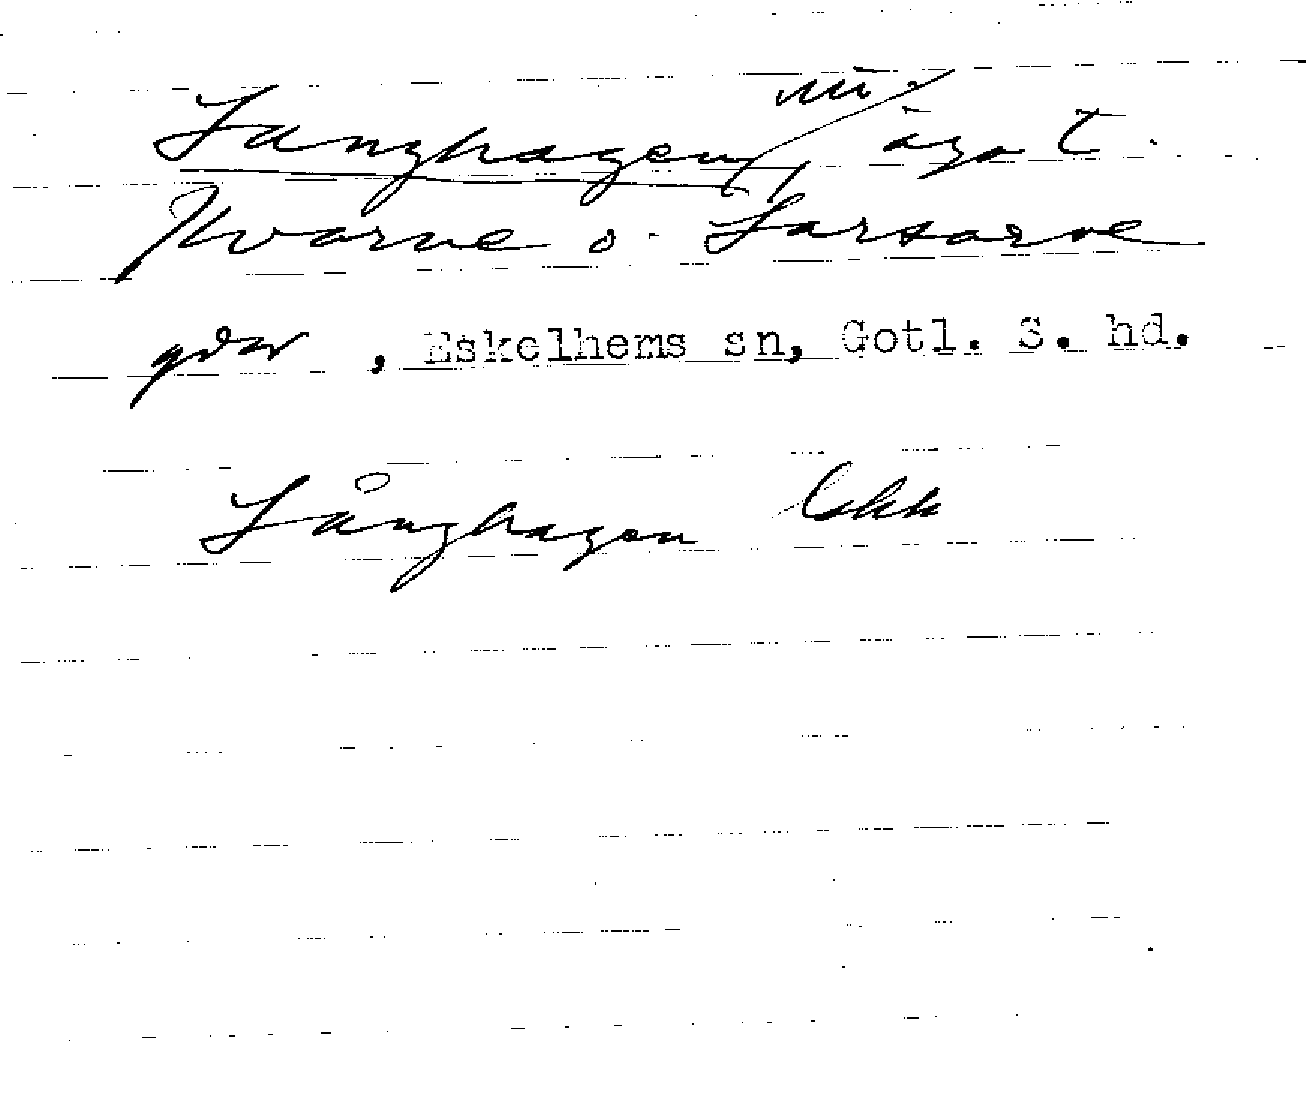 Langhagen, äga t.
Kvarne o. Larsarve
gdar, Eskelhems sn, Gotl. S. hd.
Långhagen